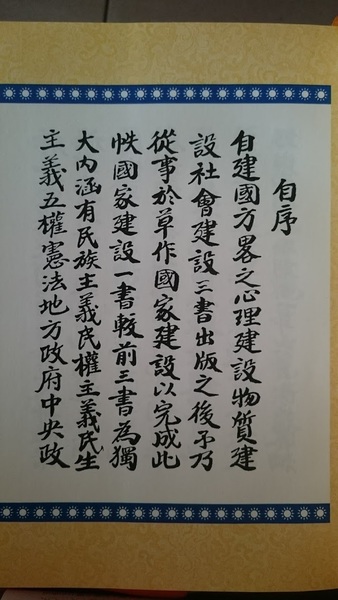 自序
自建國方畧之心理建設物質建
設社會建設三書出版之後予乃
從事於草作國家建設以完成此
帙國家建設一書較前三書為獨
大內涵有民族主義民權主義民生
主義五權憲法地方政府中央政